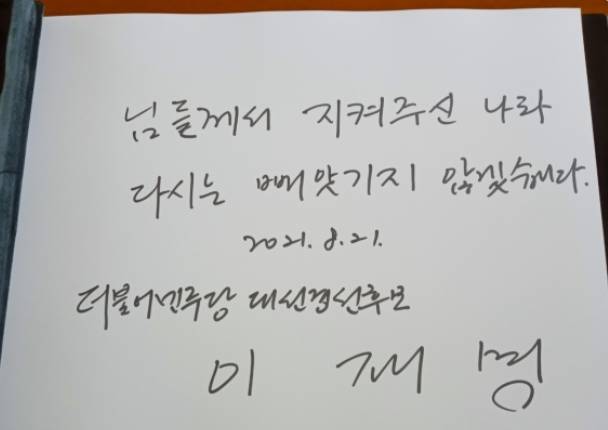 님들께서 지켜주신 나라
다시는 빼앗기지 않겠습니다.
2021. 8. 21.
더불어민주당 대선경선후보
이 재 명